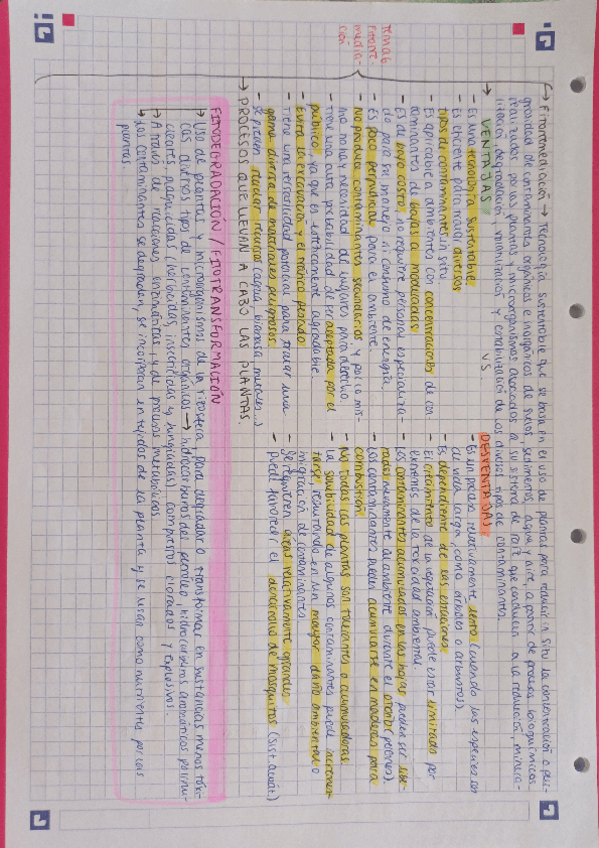 Tema 6
Fitorre-
media-
ción
→ Fitorremediación → Tecnología sustentable que se basa en el uso de plantas para reducir in situ la concentración o peli-
grosidad de contaminantes orgánicos e inorgánicos de suelos, sedimentos, agua y aire, a partir de procesos bioquímicos
realizados por las plantas y microorganismos asociados a su sistema de raíz que conducen a la reducción, minera-
lización, degradación, volatilización y estabilización de los diversos tipos de contaminantes.
→ VENTAJAS
- Es una tecnología sustentable.
- Es eficiente para tratar diversos
tipos de contaminantes in situ
- Es aplicable a ambientes con concentraciones de con-
taminantes de bajas a moderadas
- Es de bajo costo, no requiere personal especializa-
do para su manejo ni consumo de energía
- Es poco perjudicial para el ambiente.
- No produce contaminantes secundarios y por lo mis-
mo no hay necesidad de lugares para desecho.
- Tiene una alta probabilidad de ser aceptada por el
público, ya que es estéticamente agradable.
- Evita la excavación y el tráfico pesado
- Tiene una versatilidad potencial para tratar una
gama diversa de materiales peligrosos
- Se pueden reciclar recursos (agua, biomasa, metales...)
VS.
DESVENTAJAS
- Es un proceso relativamente lento (cuando las especies son
de vida larga, como árboles o arbustos).
- Es dependiente de las estaciones
- El crecimiento de la vegetación puede estar limitado por
extremos de la toxicidad ambiental.
- Los contaminantes acumulados en las hojas pueden ser libe-
rados nuevamente al ambiente durante el otoño (perennes).
- Los contaminantes pueden acumularse en maderas para
combustión
- No todas las plantas son tolerantes o acumuladoras.
- La solubilidad de algunos contaminantes puede incremen-
tarse, resultando en un mayor daño ambiental o
migración de contaminantes
- Se requieren áreas relativamente grandes
- Puede favorecer el desarrollo de mosquitos (sist. acuát.)
→ PROCESOS QUE LLEVAN A CABO LAS PLANTAS
FITODEGRADACIÓN / FITOTRANSFORMACIÓN
↳ Uso de plantas y microorganismos de la rizosfera, para degradar o transformar en sustancias menos tóxi-
cas diversos tipos de contaminantes orgánicos → hidrocarburos del petróleo, hidrocarburos aromáticos polinu-
cleares, plaguicidas (herbicidas, insecticidas y fungicidas) compuestos clorados y explosivos.
↳ A través de reacciones enzimáticas, y de procesos metabólicos
↳ Los contaminantes se degradan, se incorporan en tejidos de la planta y se usan como nutrientes por las
plantas.